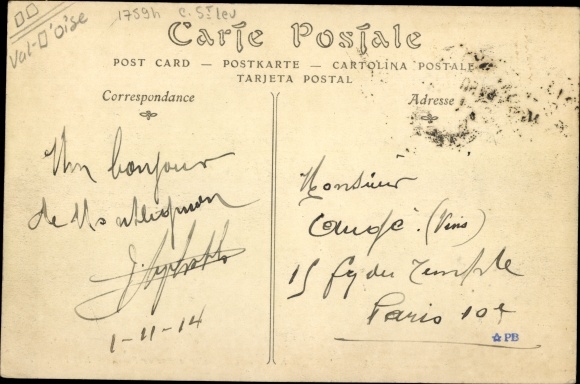 Val-d'oise
1759h C. 5t lev
Carte Postale
POST CARD — POSTKARTE — CARTOLINA POSTALE
TARJETA POSTAL
Correspondance
Adresse
Un bonjour
de Montlignon
1-11-14
Monsieur
Caugé. (Vins)
15 fg du Temple
Paris 10e
PB